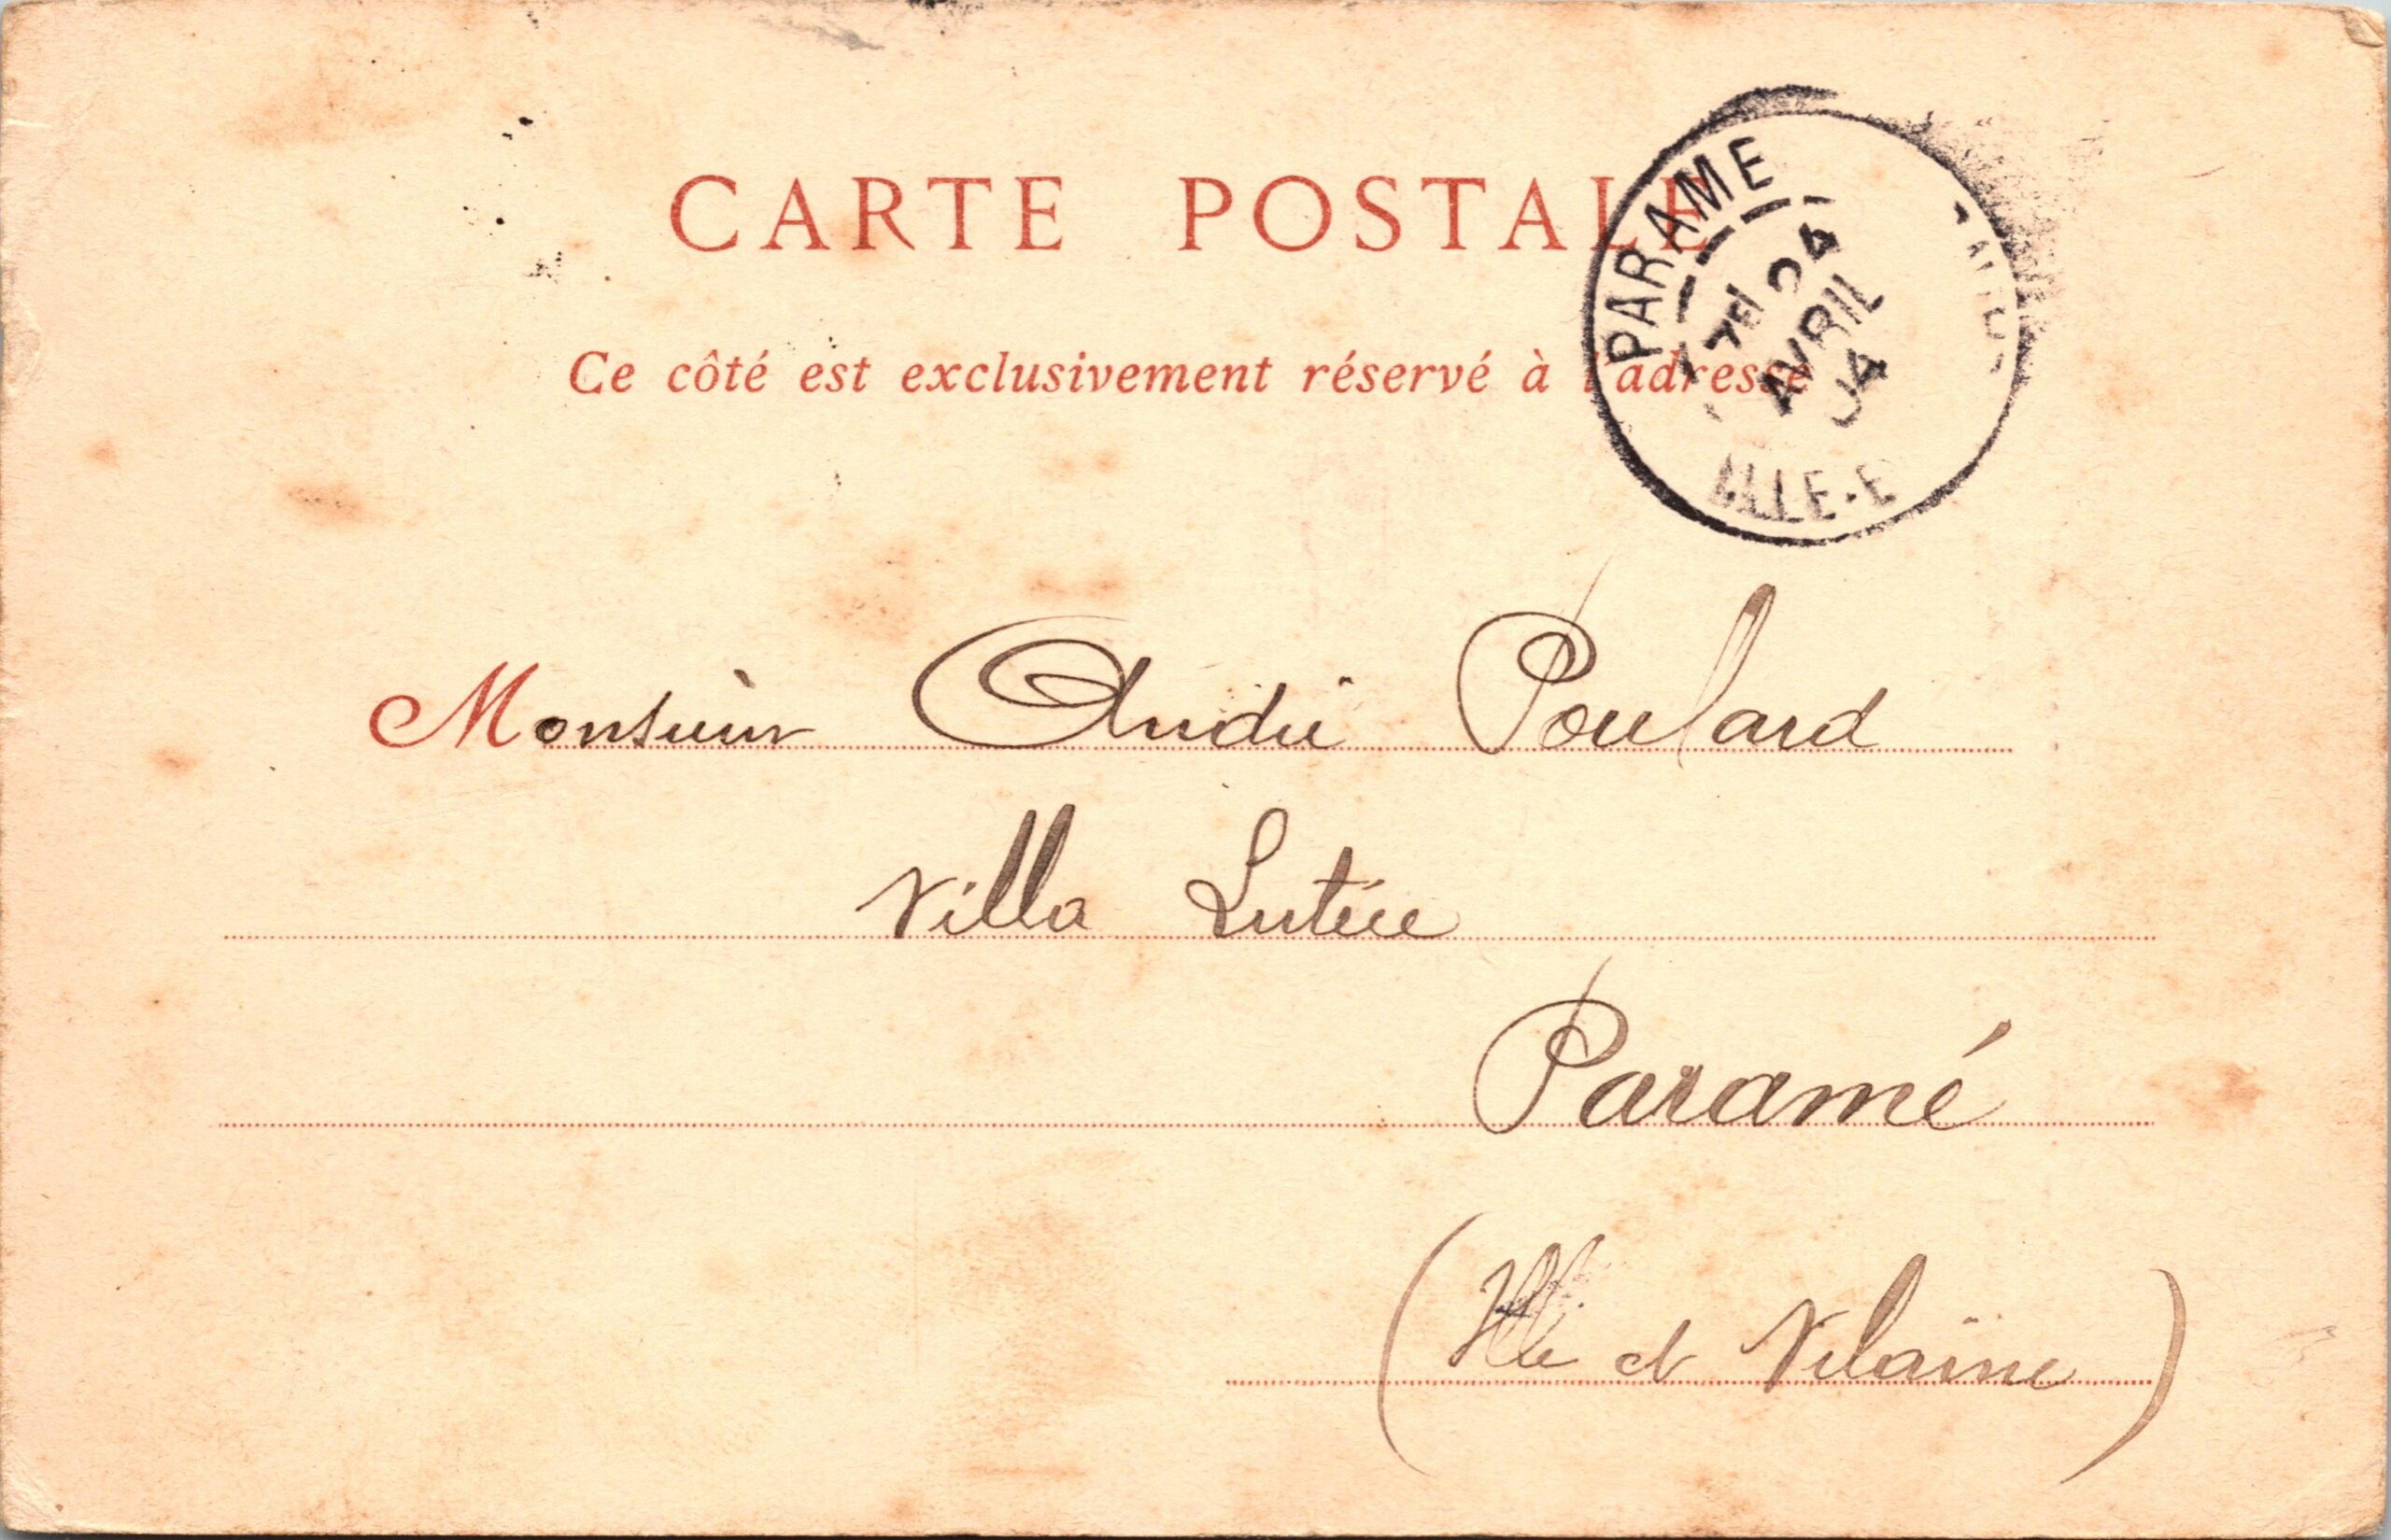 CARTE POSTALE
Ce côté est exclusivement réservé à l'adresse
PARAME
7E 24
AVRIL
04
ILLE-E
Monsieur André Poulard
Villa Lutèce
Paramé
(Ille et Vilaine)